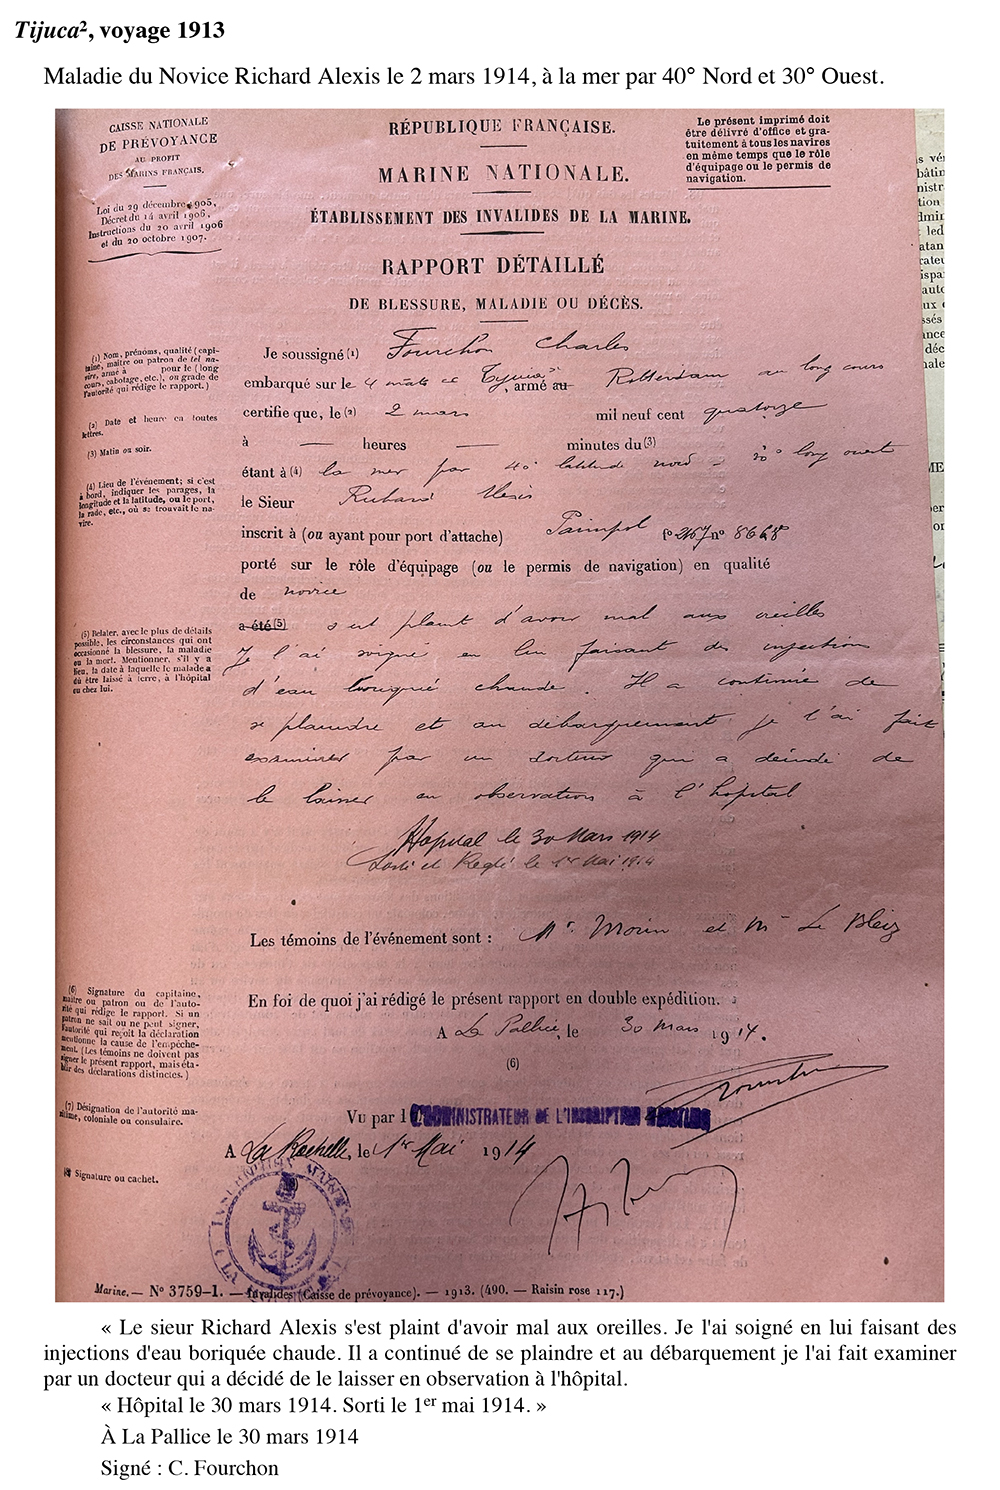 Tijuca², voyage 1913
Maladie du Novice Richard Alexis le 2 mars 1914, à la mer par 40° Nord et 30° Ouest.
CAISSE NATIONALE
DE PRÉVOYANCE
AU PROFIT
DES MARINS FRANÇAIS.
Loi du 29 décembre 1905,
Décret du 14 avril 1906,
Instructions du 20 avril 1906
et du 20 octobre 1907.
RÉPUBLIQUE FRANÇAISE.
MARINE NATIONALE.
ÉTABLISSEMENT DES INVALIDES DE LA MARINE.
RAPPORT DÉTAILLÉ
DE BLESSURE, MALADIE OU DÉCÈS.
Le présent imprimé doit
être délivré d'office et gra-
tuitement à tous les navires
en même temps que le rôle
d'équipage ou le permis de
navigation.
(1) Nom, prénoms, qualité (capi-
taine, maître ou patron de tel na-
vire, armé à pour le (long
cours, cabotage, etc.), ou grade de
l'autorité qui rédige le rapport.)
(2) Date et heure en toutes
lettres.
(3) Matin ou soir.
(4) Lieu de l'événement; si c'est
à bord, indiquer les parages, la
longitude et la latitude, ou le port,
la rade, etc., où se trouvait le na-
vire.
Je soussigné (1) Fourchon Charles
embarqué sur le 4 mats , armé au Rotterdam au long cours
certifie que, le (2) 2 mars mil neuf cent quatorze
à — heures — minutes du (3)
étant à (4) la mer par 40° latitude nord - 30° long ouest
le Sieur Richard Alexis
inscrit à (ou ayant pour port d'attache) Paimpol fo 267 no 8668
porté sur le rôle d'équipage (ou le permis de navigation) en qualité
de novice
(5) Relater, avec le plus de détails
possible, les circonstances qui ont
occasionné la blessure, la maladie
ou la mort. Mentionner, s'il y a
lieu, la date à laquelle le malade a
dû être laissé à terre, à l'hôpital
ou chez lui.
a été (5) s'est plaint d'avoir mal aux oreilles
Je l'ai soigné en lui faisant des injections
d'eau boriquée chaude. Il a continué de
se plaindre et au débarquement je l'ai fait
examiner par un docteur qui a décidé de
le laisser en observation à l'hôpital
Hopital le 30 Mars 1914
Sorti et Réglé le 1er Mai 1914
Les témoins de l'événement sont : Mr. Morin et Mr Le Bleiz
(6) Signature du capitaine,
maître ou patron ou de l'auto-
rité qui rédige le rapport. Si un
patron ne sait ou ne peut signer,
l'autorité qui reçoit la déclaration
mentionne la cause de l'empêche-
ment. (Les témoins ne doivent pas
signer le présent rapport, mais éta-
blir des déclarations distinctes.)
(7) Désignation de l'autorité ma-
ritime, coloniale ou consulaire.
(8) Signature ou cachet.
En foi de quoi j'ai rédigé le présent rapport en double expédition.
A La Pallice, le 30 mars 1914.
(6)
Vu par l L'ADMINISTRATEUR DE L'INSCRIPTION MARITIME
A La Rochelle, le 1er Mai 1914
Marine. — No 3759-1. — Invalides (Caisse de prévoyance). — 1913. (490. — Raisin rose 117.)
« Le sieur Richard Alexis s'est plaint d'avoir mal aux oreilles. Je l'ai soigné en lui faisant des
injections d'eau boriquée chaude. Il a continué de se plaindre et au débarquement je l'ai fait examiner
par un docteur qui a décidé de le laisser en observation à l'hôpital.
« Hôpital le 30 mars 1914. Sorti le 1er mai 1914. »
À La Pallice le 30 mars 1914
Signé : C. Fourchon